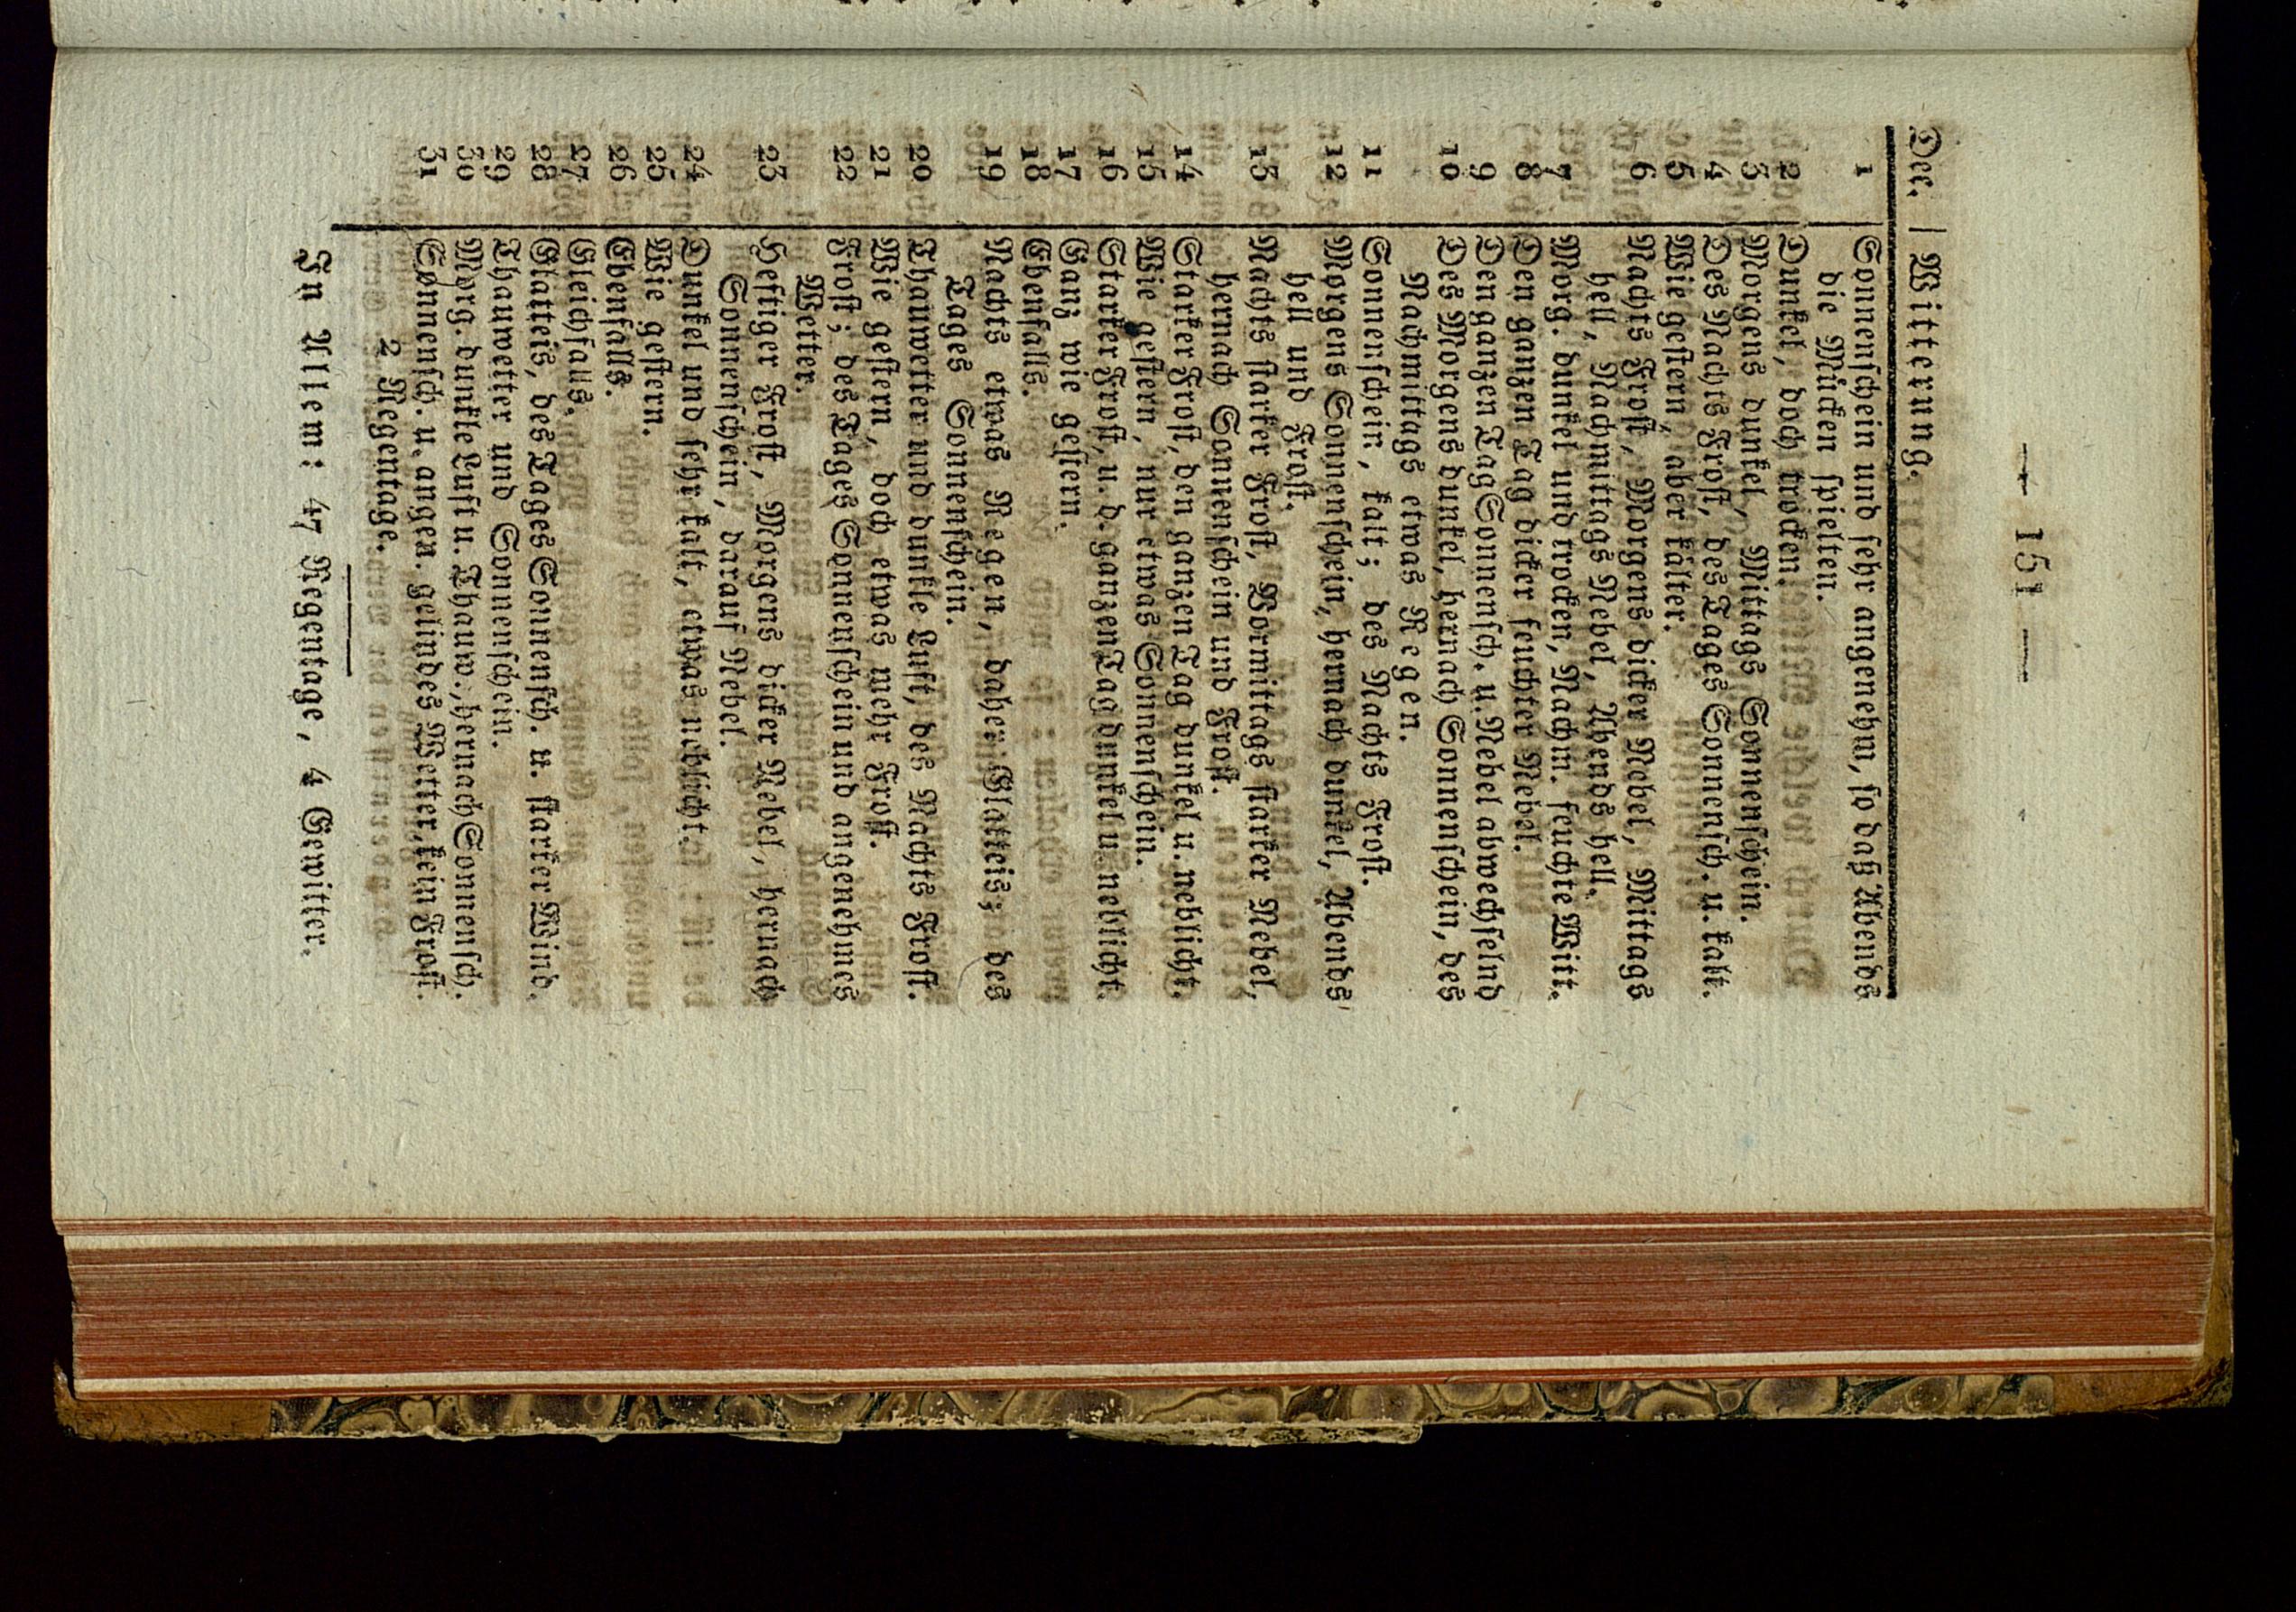 — 151 —
Dec. | Witterung.
1 Sonnenschein und sehr angenehm, so daß Abends
die Mücken spielten.
2 Dunkel, doch trocken.
3 Morgens dunkel, Mittags Sonnenschein.
4 Des Nachts Frost, des Tages Sonnensch. u. kalt.
5 Wie gestern, aber kälter.
6 Nachts Frost, Morgens dicker Nebel, Mittags
hell, Nachmittags Nebel, Abends hell.
7 Morg. dunkel und trocken, Nachm. feuchte Witt.
8 Den ganzen Tag dicker feuchter Nebel.
9 Den ganzen Tag Sonnensch. u. Nebel abwechselnd
10 Des Morgens dunkel, hernach Sonnenschein, des
Nachmittags etwas Regen.
11 Sonnenschein, kalt; des Nachts Frost.
12 Morgens Sonnenschein, hernach dunkel, Abends
hell und Frost.
13 Nachts starker Frost, Vormittags starker Nebel,
hernach Sonnenschein und Frost.
14 Starker Frost, den ganzen Tag dunkel u. neblicht.
15 Wie gestern, nur etwas Sonnenschein.
16 Starker Frost, u. d. ganzen Tag dunkel u. neblicht.
17 Ganz wie gestern.
18 Ebenfalls.
19 Nachts etwas Regen, daher Glatteis; des
Tages Sonnenschein.
20 Thauwetter und dunkle Luft, des Nachts Frost.
21 Wie gestern, doch etwas mehr Frost.
22 Frost; des Tages Sonnenschein und angenehmes
Wetter.
23 Heftiger Frost, Morgens dicker Nebel, hernach
Sonnenschein, darauf Nebel.
24 Dunkel und sehr kalt, etwas neblicht.
25 Wie gestern.
26 Ebenfalls.
27 Gleichfalls.
28 Glatteis, des Tages Sonnensch. u. starker Wind.
29 Thauwetter und Sonnenschein.
30 Morg. dunkle Luft u. Thauw., hernach Sonnensch.
31 Sonnensch. u. angen. gelindes Wetter, kein Frost.
2 Regentage.
In Allem: 47 Regentage, 4 Gewitter.